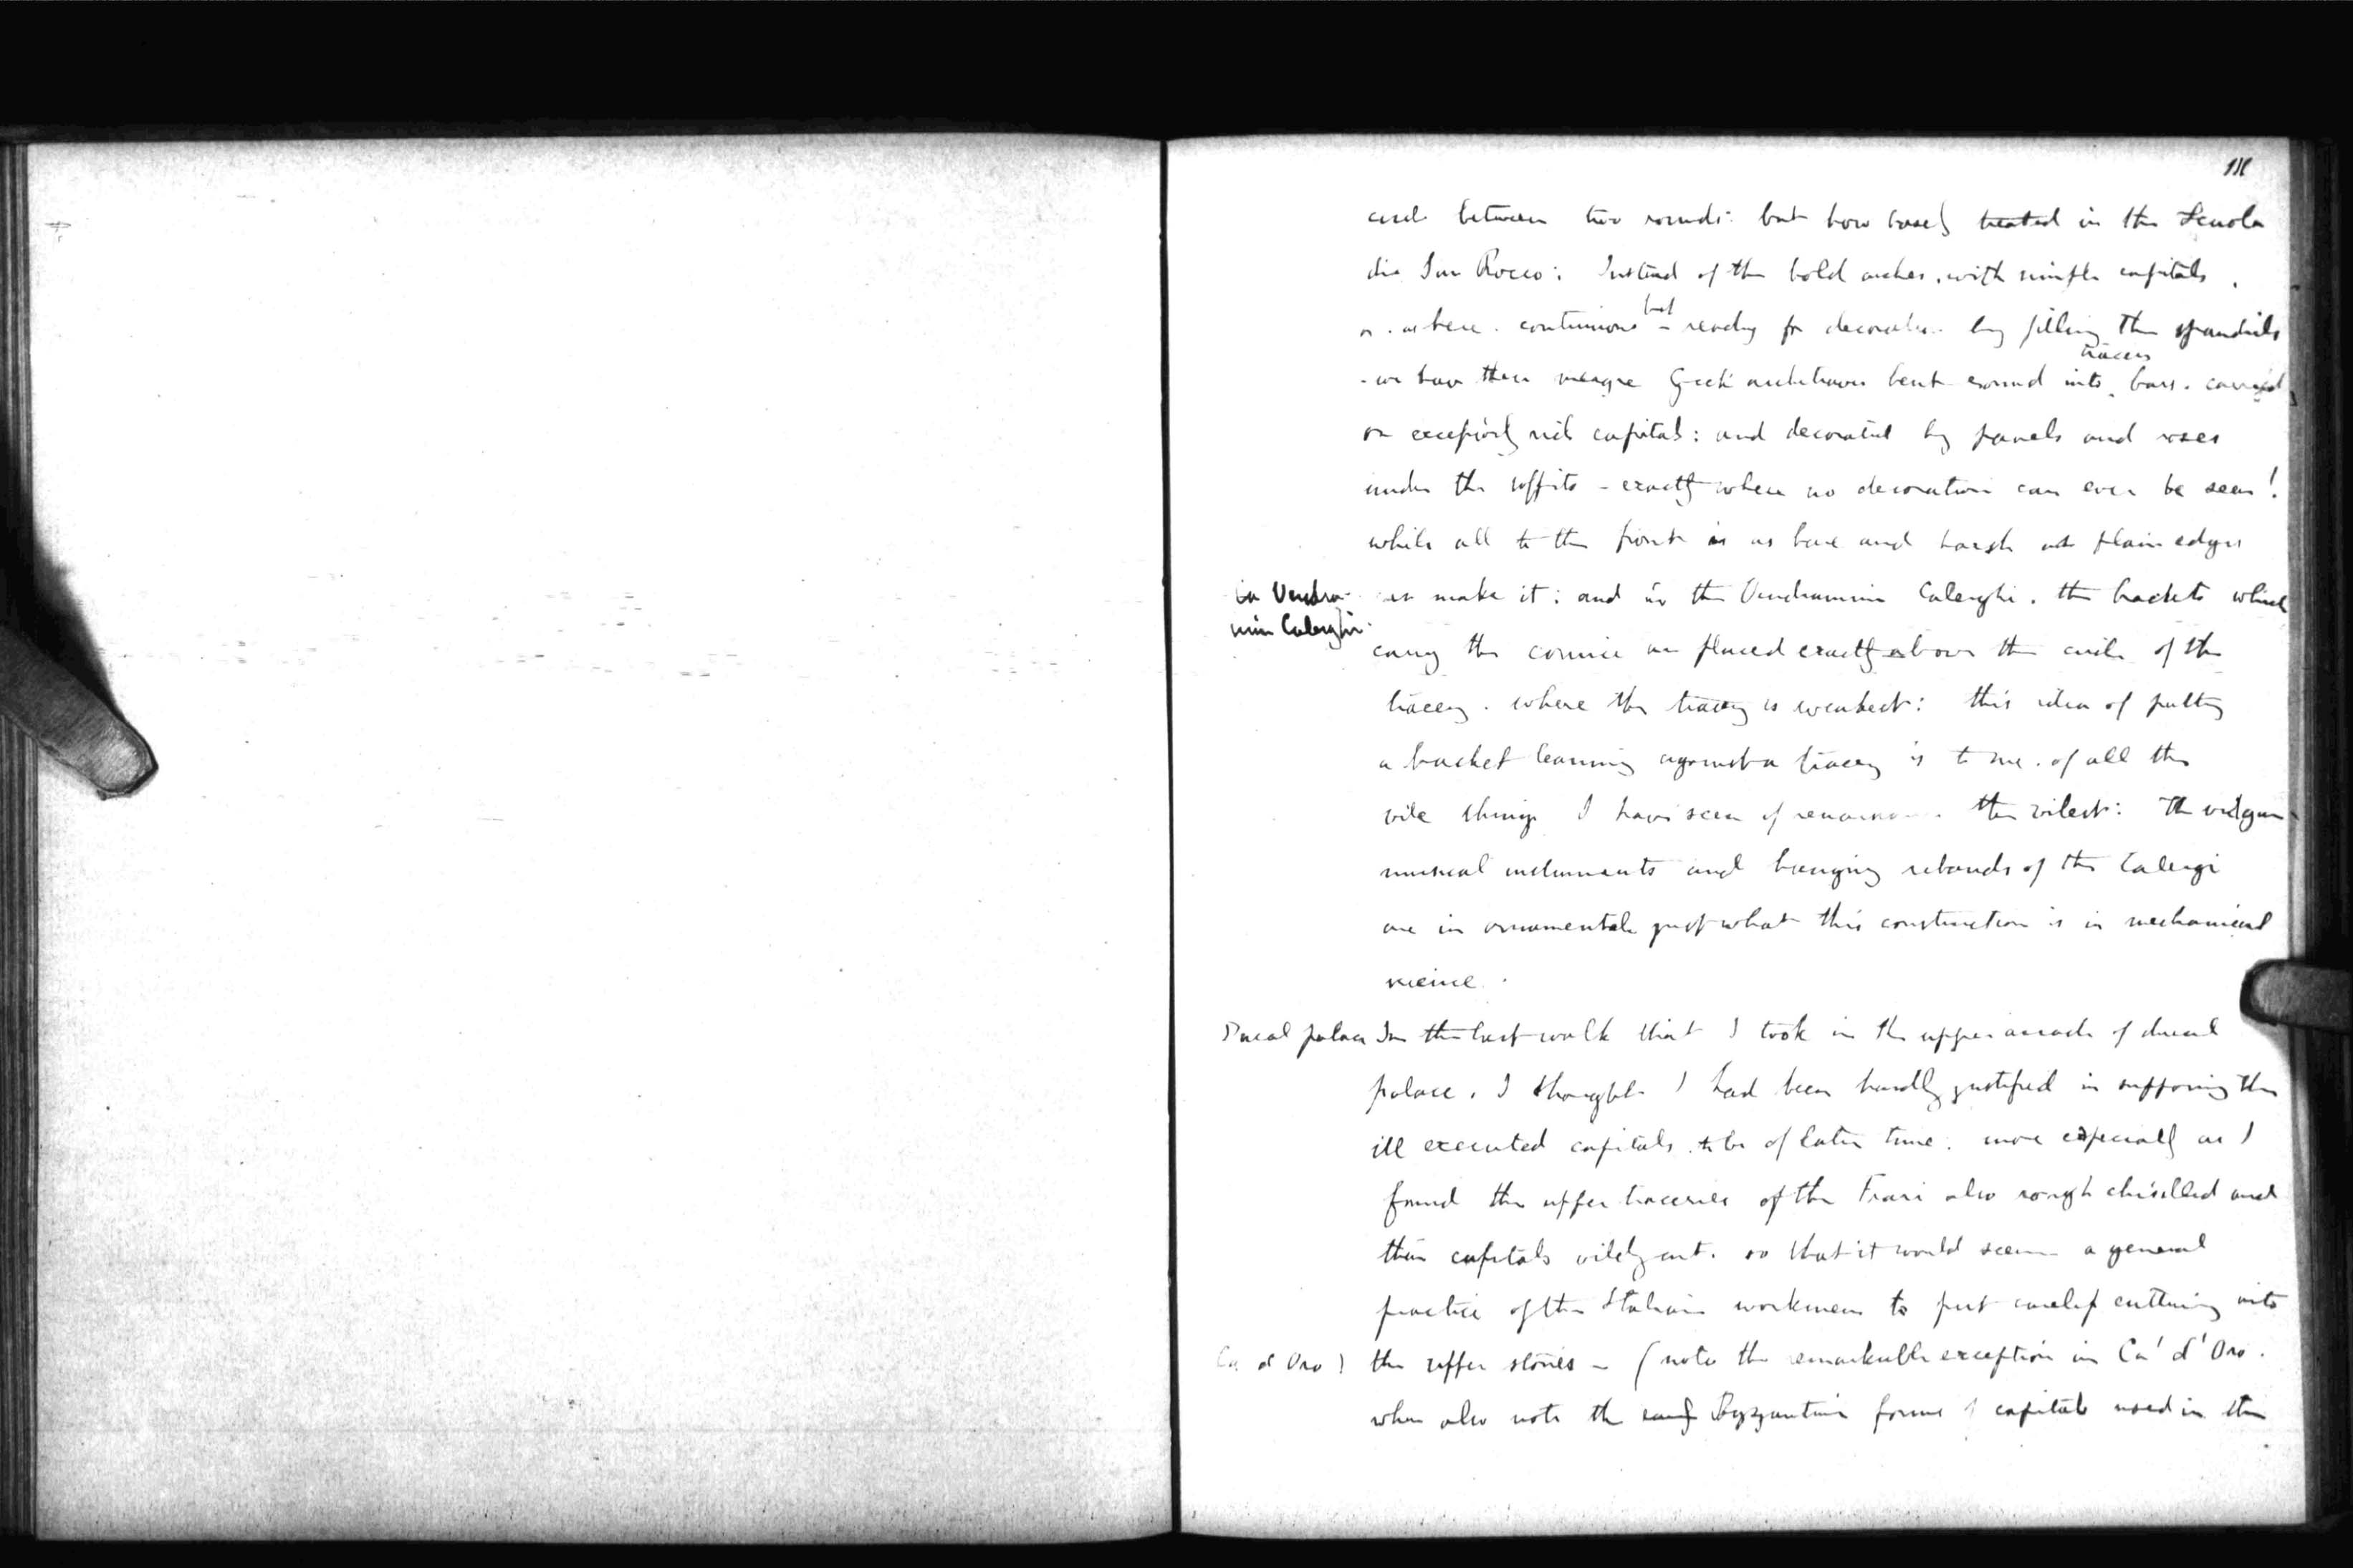 111
circle between two rounds: but how basely treated in the Scuola
di San Rocco: Instead of the bold arches, with simple capitals,
or. as here. continuous but - ready for decoration by filling the spandrils
- we have these meagre Greek architraves bent round into tracery bars. carried
on exceptionally rich capitals: and decorated by panels and roses
under the soffits - exactly where no decoration can ever be seen!
while all to the front is as bare and harsh as plain edges
Ca Vendra-
min Calerghi.
can make it: and in the Vendrammin Calerghi. the brackets which
carry the cornice are placed exactly above the circle of the
tracery. where the tracery is weakest: this idea of putting
a bracket leaning against a tracery is to me. of all the
vile things I have seen of renaissance the vilest: The vulgar
musical instruments and hanging ribands of the Calergi
are in ornamental just what this construction is in mechanical
science.
Ducal palace
In the last walk that I took in the upper arcade of ducal
palace, I thought I had been hardly justified in supposing the
ill executed capitals to be of later time. more especially as I
found the upper traceries of the Frari also rough chiselled and
their capitals vilely cut. so that it would seem a general
practice of the Italian workmen to put careless cutting into
Ca d'Oro)
the upper stories - (note the remarkable exception in Ca' d'Oro.
when also note the Byzantine forms of capitals used in the